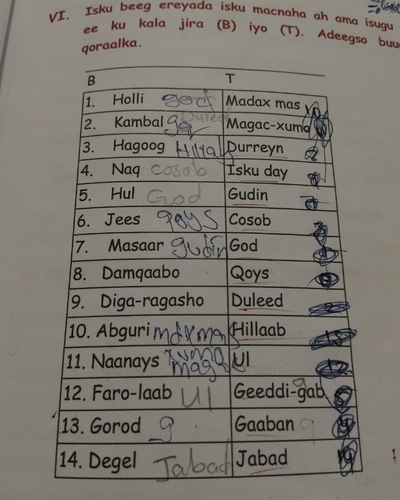 VI. Isku beeg ereyada isku macnaha ah ama isugu
ee ku kala jira (B) iyo (T). Adeegso buu
qoraalka.
B T
1. Holli god Madax mas
2. Kambal Duleed Magac-xumo
3. Hagoog Hillab Durreyn
4. Naq cosob Isku day
5. Hul God Gudin
6. Jees qoys Cosob
7. Masaar gudin God
8. Damqaabo Qoys
9. Diga-ragasho Duleed
10. Abguri Hillaab
11. Naanays xuma magac Ul
12. Faro-laab Ul Geeddi-gab
13. Gorod g Gaaban
14. Degel Jabad Jabad